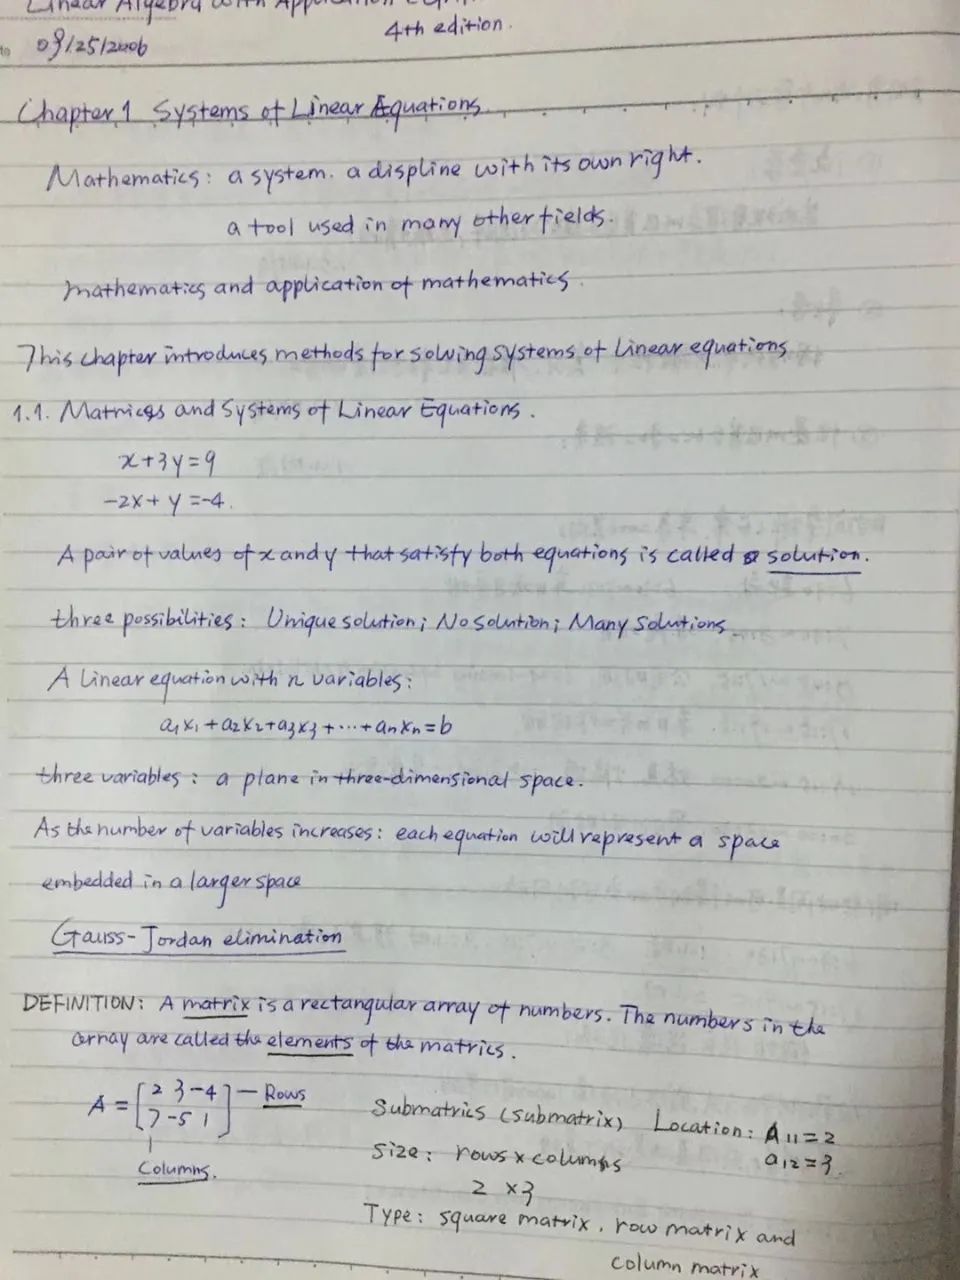 Linear Algebra with Application
4th edition.
09/25/2006
Chapter 1 Systems of Linear Equations
Mathematics: a system. a displine with its own right.
a tool used in many other fields.
mathematics and application of mathematics.
This chapter introduces methods for solving systems of linear equations
1.1. Matrices and Systems of Linear Equations.
x+3y=9
-2x+y=-4.
A pair of values of x and y that satisfy both equations is called a solution.
three possibilities: Unique solution; No solution; Many solutions
A linear equation with n variables:
a₁x₁+a₂x₂+a₃x₃+⋯+aₙxₙ=b
three variables: a plane in three-dimensional space.
As the number of variables increases: each equation will represent a space
embedded in a larger space
Gauss-Jordan elimination
DEFINITION: A matrix is a rectangular array of numbers. The numbers in the
array are called the elements of the matrics.
A = [2 3 -4 — Rows
7 -5 1]
Columns.
Submatrics (submatrix) Location: a₁₁=2
Size: rows x columns a₁₂=3.
2 x3
Type: square matrix, row matrix and
column matrix